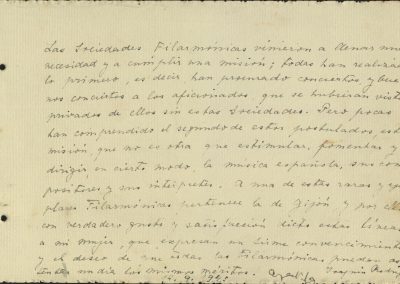 Las Sociedades Filarmónicas vinieron a llenar una
necesidad y a cumplir una misión; todas han realizado
lo primero, es decir han procurado conciertos y bue
nos conciertos a los aficionados, que se hubieran visto
privados de ellos sin estas Sociedades. Pero pocas
han comprendido el segundo de estos postulados, esta
misión, que no es otra que estimular, fomentar y
dirigir en cierto modo, la música española, sus com
positores y sus intérpretes. A una de estas raras y
plares Filarmónicas pertenece la de Gijón y por ello
con verdadero gusto y satisfacción dicto estas líneas
a mi mujer, que expresan un firme convencimiento
y el deseo de que todas las Filarmónicas puedan
un día los mismos méritos.
Joaquín Rodrigo